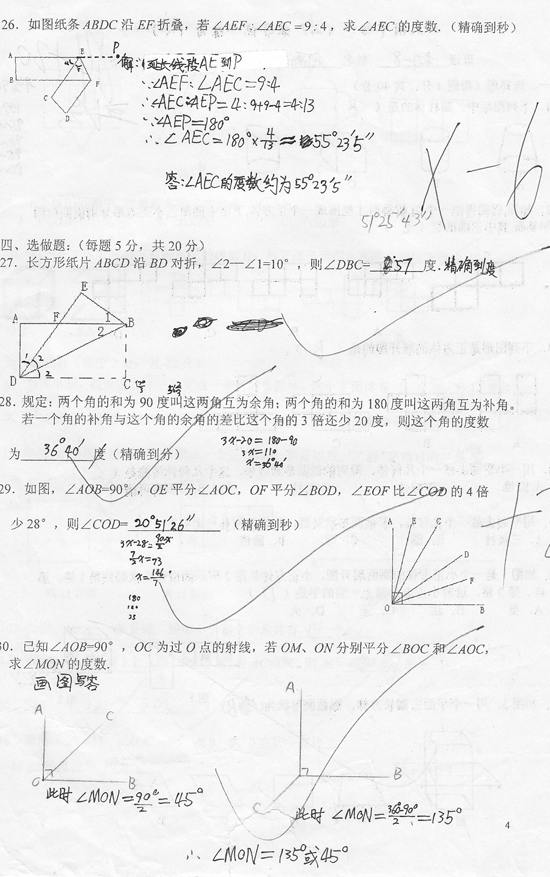 26. 如图纸条 ABDC 沿 EF 折叠，若∠AEF：∠AEC＝9：4，求∠AEC 的度数．(精确到秒)
A
E
P
B
F
C
D
∵∠AEF:∠AEC=9:4
∴∠AEC:∠AEP=4:9+9-4=4:13
∵∠AEP=180°
∴∠AEC=180°×4/13≈55°23′5″
答:∠AEC的度数约为55°23′5″
-6
51°25′43″
四、选做题：(每题 5 分，共 20 分)
27．长方形纸片 ABCD 沿 BD 对折，∠2—∠1=10°，则∠DBC= 57 度.精确到度
E
A
F
1
B
2
D
1
2
2
C
28．规定：两个角的和为 90 度叫这两角互为余角；两个角的和为 180 度叫这两角互为补角。
若一个角的补角与这个角的余角的差比这个角的 3 倍还少 20 度，则这个角的度数
为 36°40′ 度（精确到分）
3x-20=180-90
3x=110
x=36°40′
29．如图，∠AOB=90°，OE 平分∠AOC，OF 平分∠BOD，∠EOF 比∠COD 的 4 倍
少 28°，则∠COD= 20°51′26″ （精确到秒）
7/2x=73
x=146/7
180
A
E
C
D
F
O
B
30．已知∠AOB=90°，OC 为过 O 点的射线，若 OM、ON 分别平分∠BOC 和∠AOC，
求∠MON 的度数．
画图写答
A
C
O
B
此时∠MON=90°/2=45°
A
B
C
此时∠MON=360°-90°/2=135°
∴∠MON=135°或45°
4